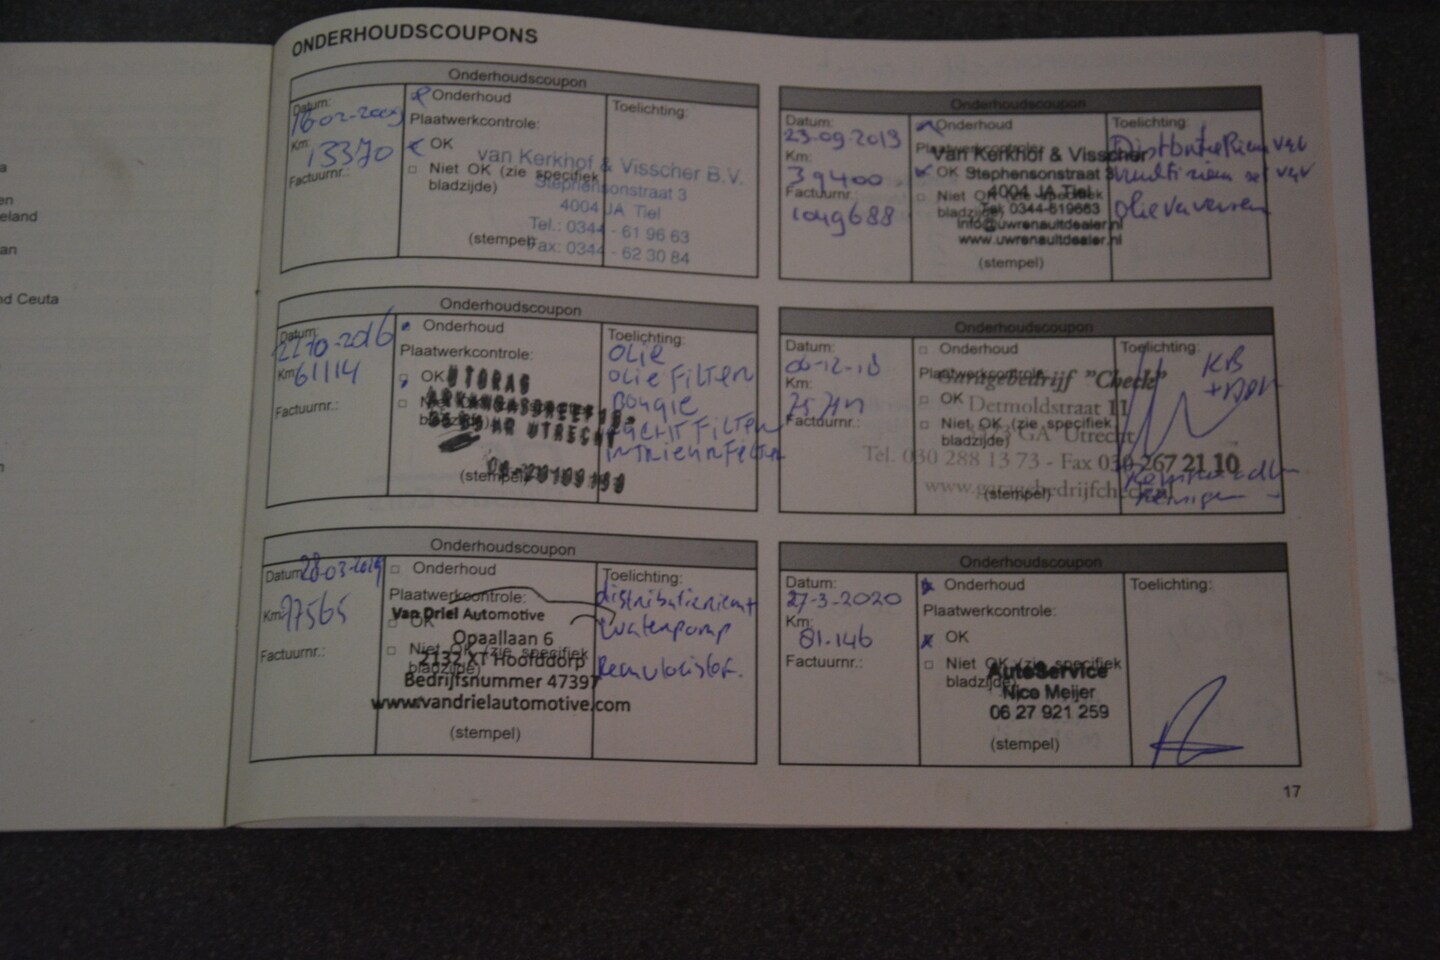 a
en
eland
an
nd Ceuta
n
ONDERHOUDSCOUPONS
Onderhoudscoupon
Datum:
16-02-2009
Km:
13370
Factuurnr.:
Onderhoud
Plaatwerkcontrole:
OK
Niet OK (zie specifiek
bladzijde)
van Kerkhof & Visscher B.V.
Stephensonstraat 3
4004 JA Tiel
Tel.: 0344 - 61 96 63
Fax: 0344 - 62 30 84
(stempel)
Toelichting:
Onderhoudscoupon
Datum:
23-09-2013
Km:
39400
Factuurnr.:
1049688
Onderhoud
Plaatwerkcontrole:
OK
Niet OK (zie specifiek
bladzijde)
van Kerkhof & Visscher
Stephensonstraat 3
4004 JA Tiel
Tel. 0344-619663
info@uwrenaultdealer.nl
www.uwrenaultdealer.nl
(stempel)
Toelichting:
Distributieriem
Olie verversen
Onderhoudscoupon
Datum:
22-10-2016
Km:
61114
Factuurnr.:
Onderhoud
Plaatwerkcontrole:
OK
UTRECHT
(stempel)
Toelichting:
OLIE
OLIE FILTER
BOUGIE
LUCHT FILTER
INTRIEURFILTER
Onderhoudscoupon
Datum:
06-12-18
Km:
Factuurnr.:
Onderhoud
Plaatwerkcontrole:
OK
Niet OK (zie specifiek
bladzijde)
Garagebedrijf "Check"
Detmoldstraat 11
GA Utrecht
Tel. 030 288 13 73 - Fax 030-267 21 10
www.garagebedrijfcheck.nl
(stempel)
Toelichting:
KB
Onderhoudscoupon
Datum:
28-03-2019
Km:
77565
Factuurnr.:
Onderhoud
Plaatwerkcontrole:
OK
Niet OK (zie specifiek
bladzijde)
Van Driel Automotive
Opaallaan 6
2132 XT Hoofddorp
Bedrijfsnummer 47397
www.vandrielautomotive.com
(stempel)
Toelichting:
distributieriem +
waterpomp
Remvloeistof.
Onderhoudscoupon
Datum:
27-3-2020
Km:
81.146
Factuurnr.:
Onderhoud
Plaatwerkcontrole:
OK
Niet OK (zie specifiek
bladzijde)
AutoService
Nico Meijer
06 27 921 259
(stempel)
Toelichting:
17